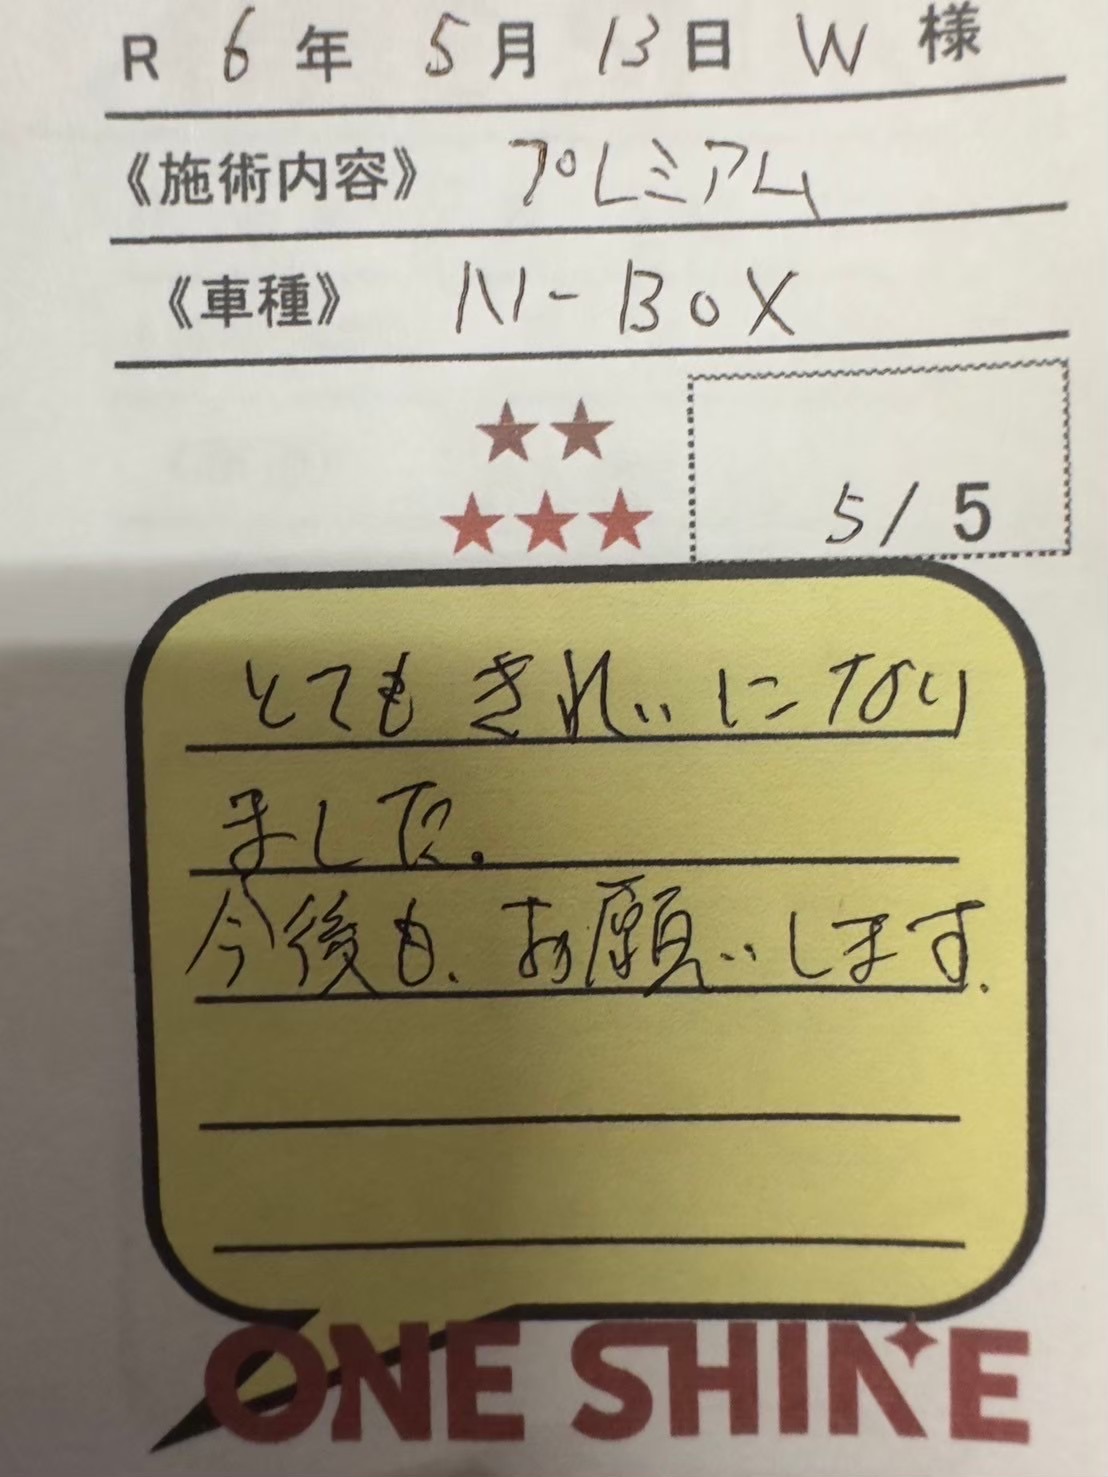 R 6年 5月 13日 W 様
《施術内容》 プレミアム
《車種》 N-BOX
★★
★★★
5/5
とてもきれいになり
ました。
今後も、お願いします.
ONE SHINE